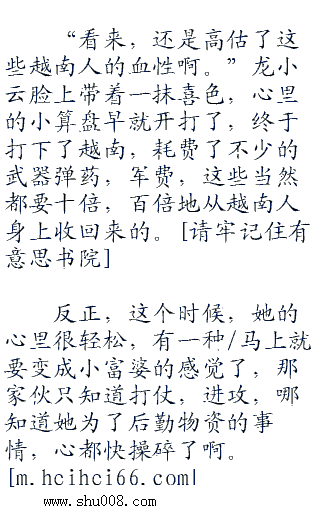 “看来，还是高估了这
些越南人的血性啊。”龙小
云脸上带着一抹喜色，心里
的小算盘早就开打了，终于
打下了越南，耗费了不少的
武器弹药，军费，这些当然
都要十倍，百倍地从越南人
身上收回来的。[请牢记住有
意思书院]
反正，这个时候，她的
心里很轻松，有一种/马上就
要变成小富婆的感觉了，那
家伙只知道打仗，进攻，哪
知道她为了后勤物资的事
情，心都快操碎了啊。
[m.hcihci66.com]
www.shu008.com